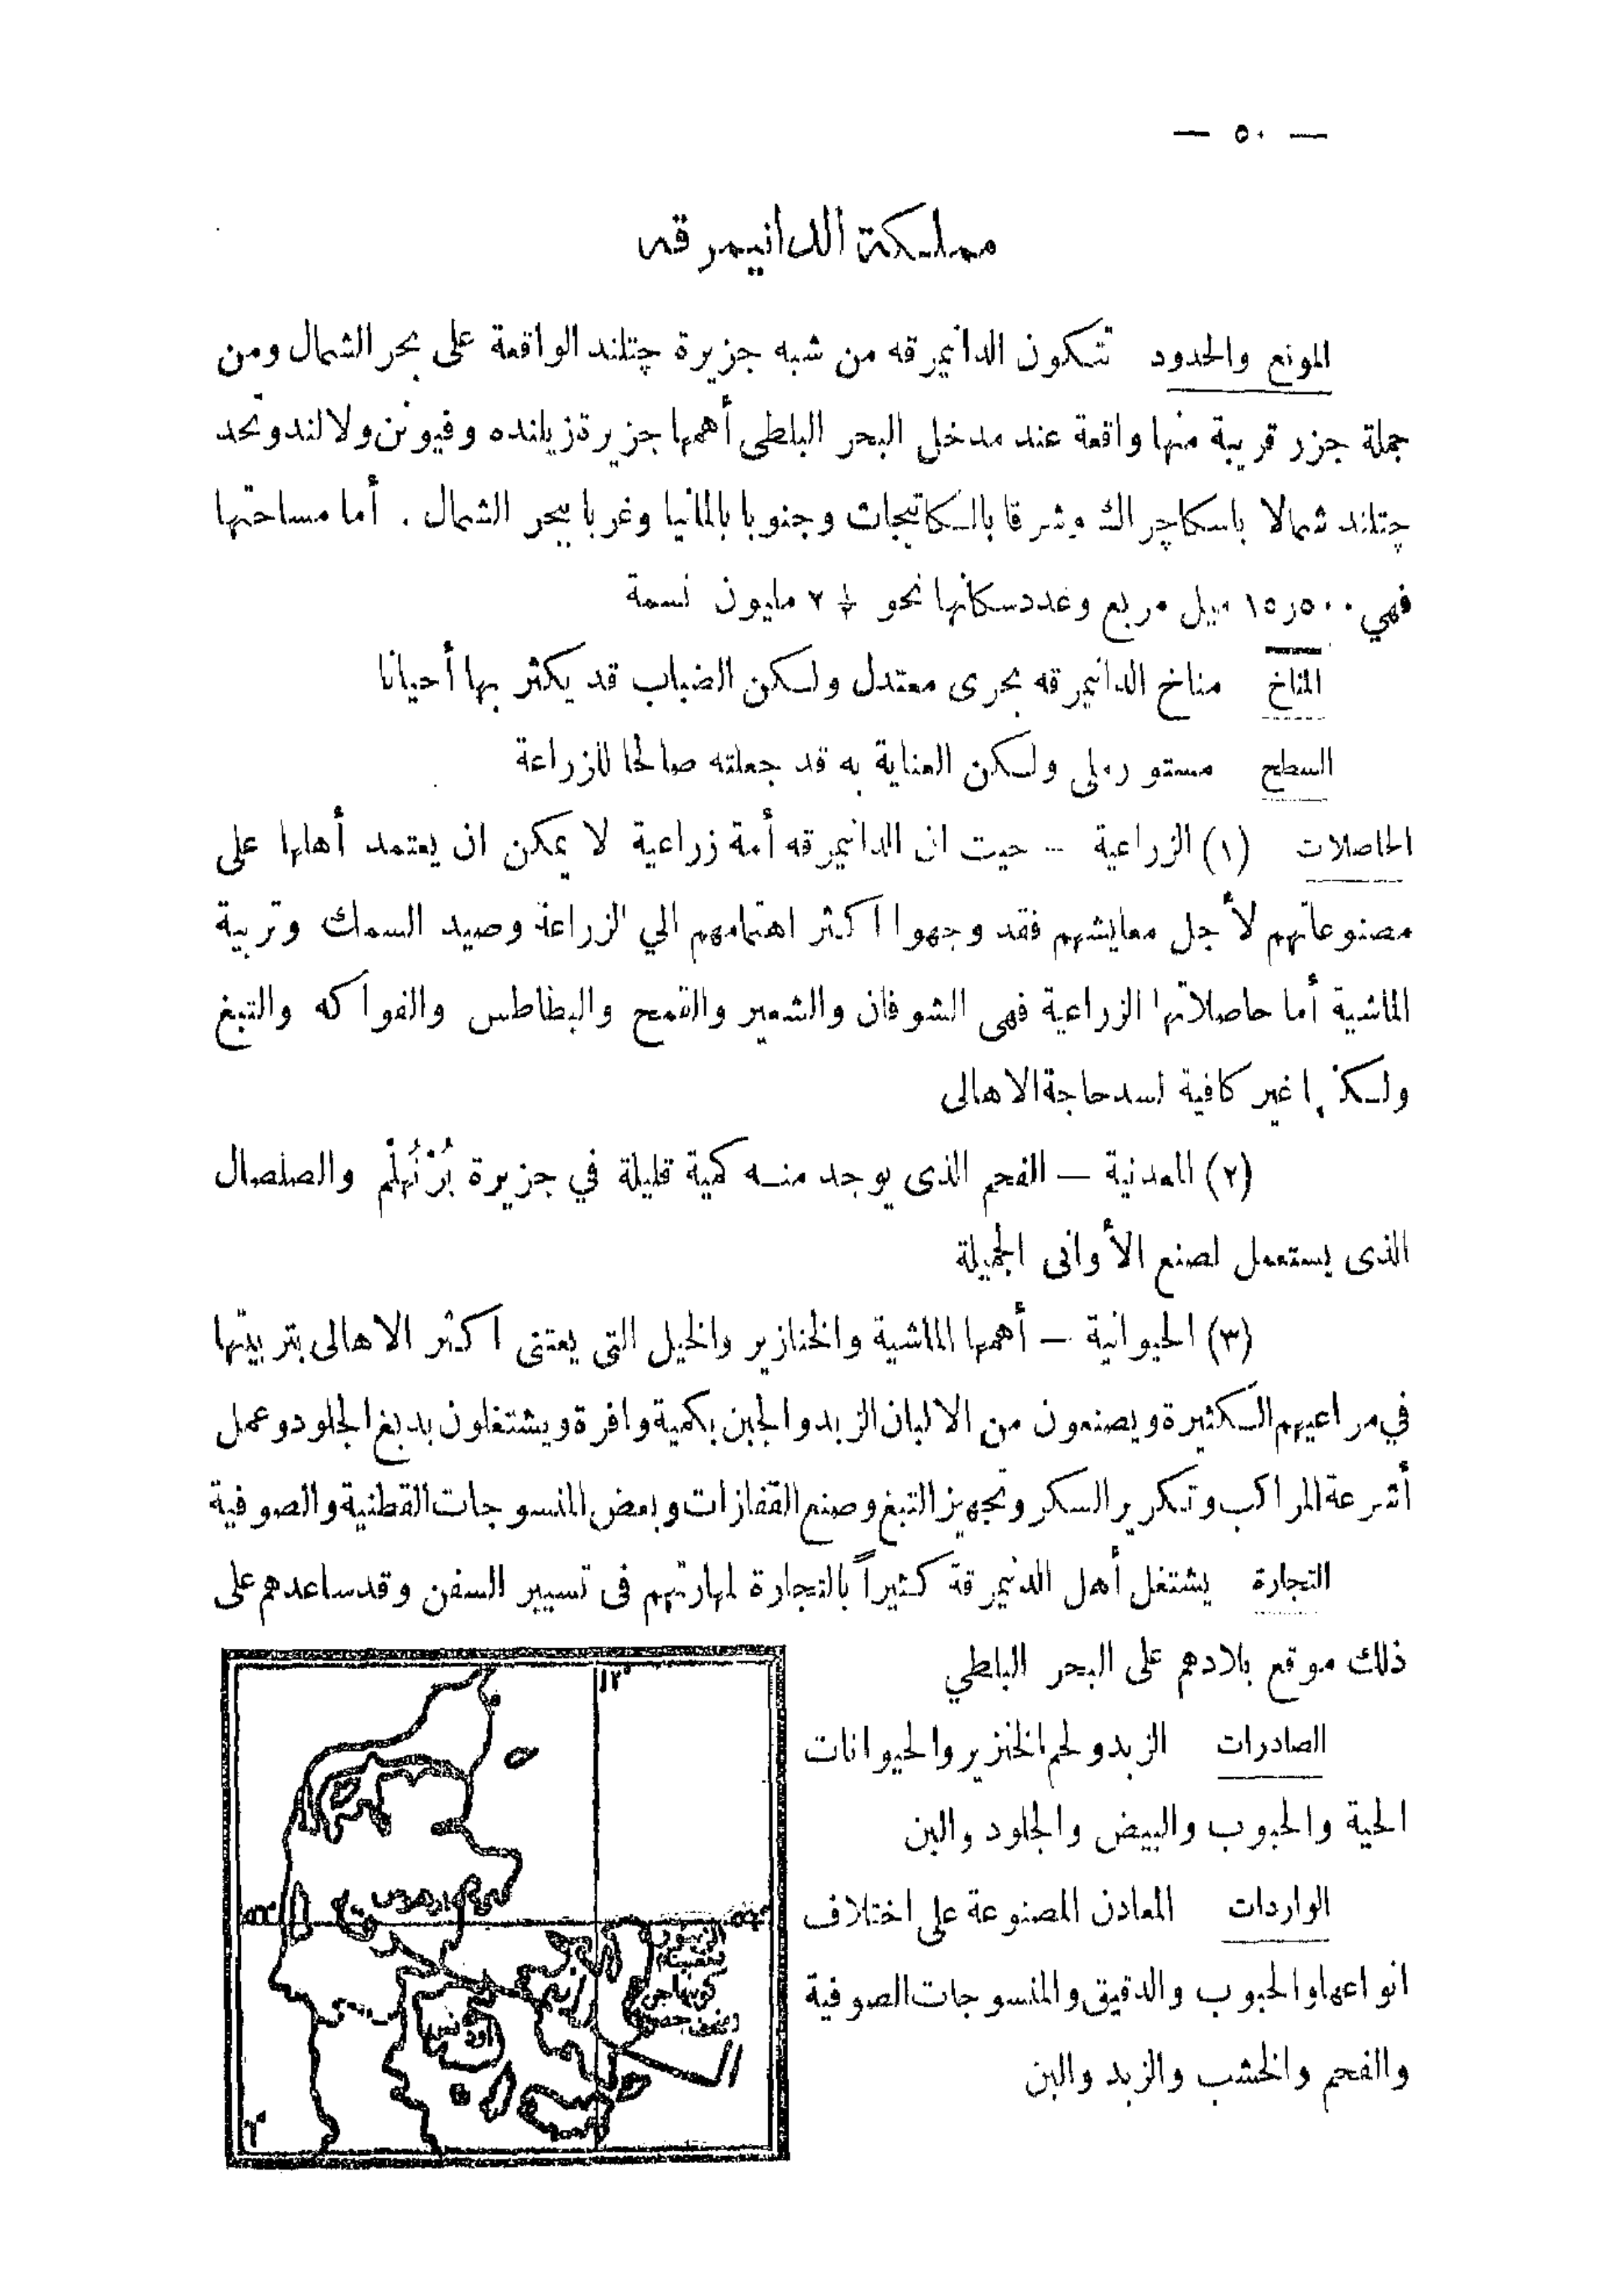 — ٥٠ —
مملكة الدانيمرقه
الموقع والحدود تتكون الدانيمرقه من شبه جزيرة چتلند الواقعة على بحر الشمال ومن
جملة جزر قريبة منها واقعة عند مدخل البحر البلطى أهمها جزيرة زيلنده وفيونن ولالند وتحد
چتلند شمالا باسكاچراك وشرقا بالكاتيجات وجنوبا بالمانيا وغربا ببحر الشمال . أما مساحتها
فهي ١٥٫٥٠٠ ميل مربع وعدد سكانها نحو ٢ مليون نسمة
المناخ مناخ الدانيمرقه بحرى معتدل ولكن الضباب قد يكثر بها أحيانا
السطح مستو رملى ولكن العناية به قد جعلته صالحا للزراعة
الحاصلات (١) الزراعية – حيث ان الدانيمرقه أمة زراعية لا يمكن ان يعتمد أهلها على
مصنوعاتهم لأجل معايشهم فقد وجهوا اكثر اهتمامهم الي الزراعة وصيد السمك وتربية
الماشية أما حاصلاتها الزراعية فهى الشوفان والشعير والقمح والبطاطس والفواكه والتبغ
ولكنها غير كافية لسد حاجة الاهالى
(٢) المعدنية — الفحم الذى يوجد منه كمية قليلة في جزيرة بُرْنُهلْم والصلصال
الذى يستعمل لصنع الأوانى الجميلة
(٣) الحيوانية — أهمها الماشية والخنازير والخيل التى يعتنى اكثر الاهالى بتربيتها
في مراعيهم الكثيرة ويصنعون من الالبان الزبد والجبن بكمية وافرة ويشتغلون بدبغ الجلود وعمل
أشرعة المراكب وتكرير السكر وتجهيز التبغ وصنع القفازات وبعض المنسوجات القطنية والصوفية
التجارة يشتغل أهل الدنيمرقة كثيراً بالتجارة لمهارتهم فى تسيير السفن وقد ساعدهم على
ذلك موقع بلادهم على البحر البلطي
الصادرات الزبد ولحم الخنزير والحيوانات
الحية والحبوب والبيض والجلود والبن
الواردات المعادن المصنوعة على اختلاف
انواعها والحبوب والدقيق والمنسوجات الصوفية
والفحم والخشب والزبد والبن
١٢°
اودنس